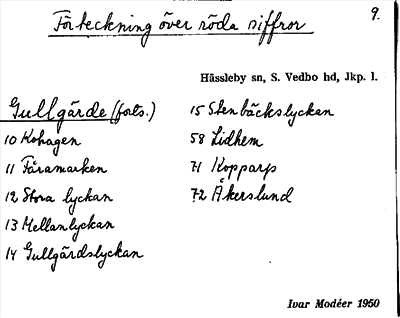 Förteckning över röda siffror
9.
Hässleby sn, S. Vedbo hd, Jkp. l.
Gullgärde (forts.)
10 Kohagen
11 Fåramarken
12 Stora lyckan
13 Mellanlyckan
14 Gullgärdslyckan
15 Stenbäckslyckan
58 Lidhem
71 Kopparp
72 Åkerslund
Ivar Modéer 1950